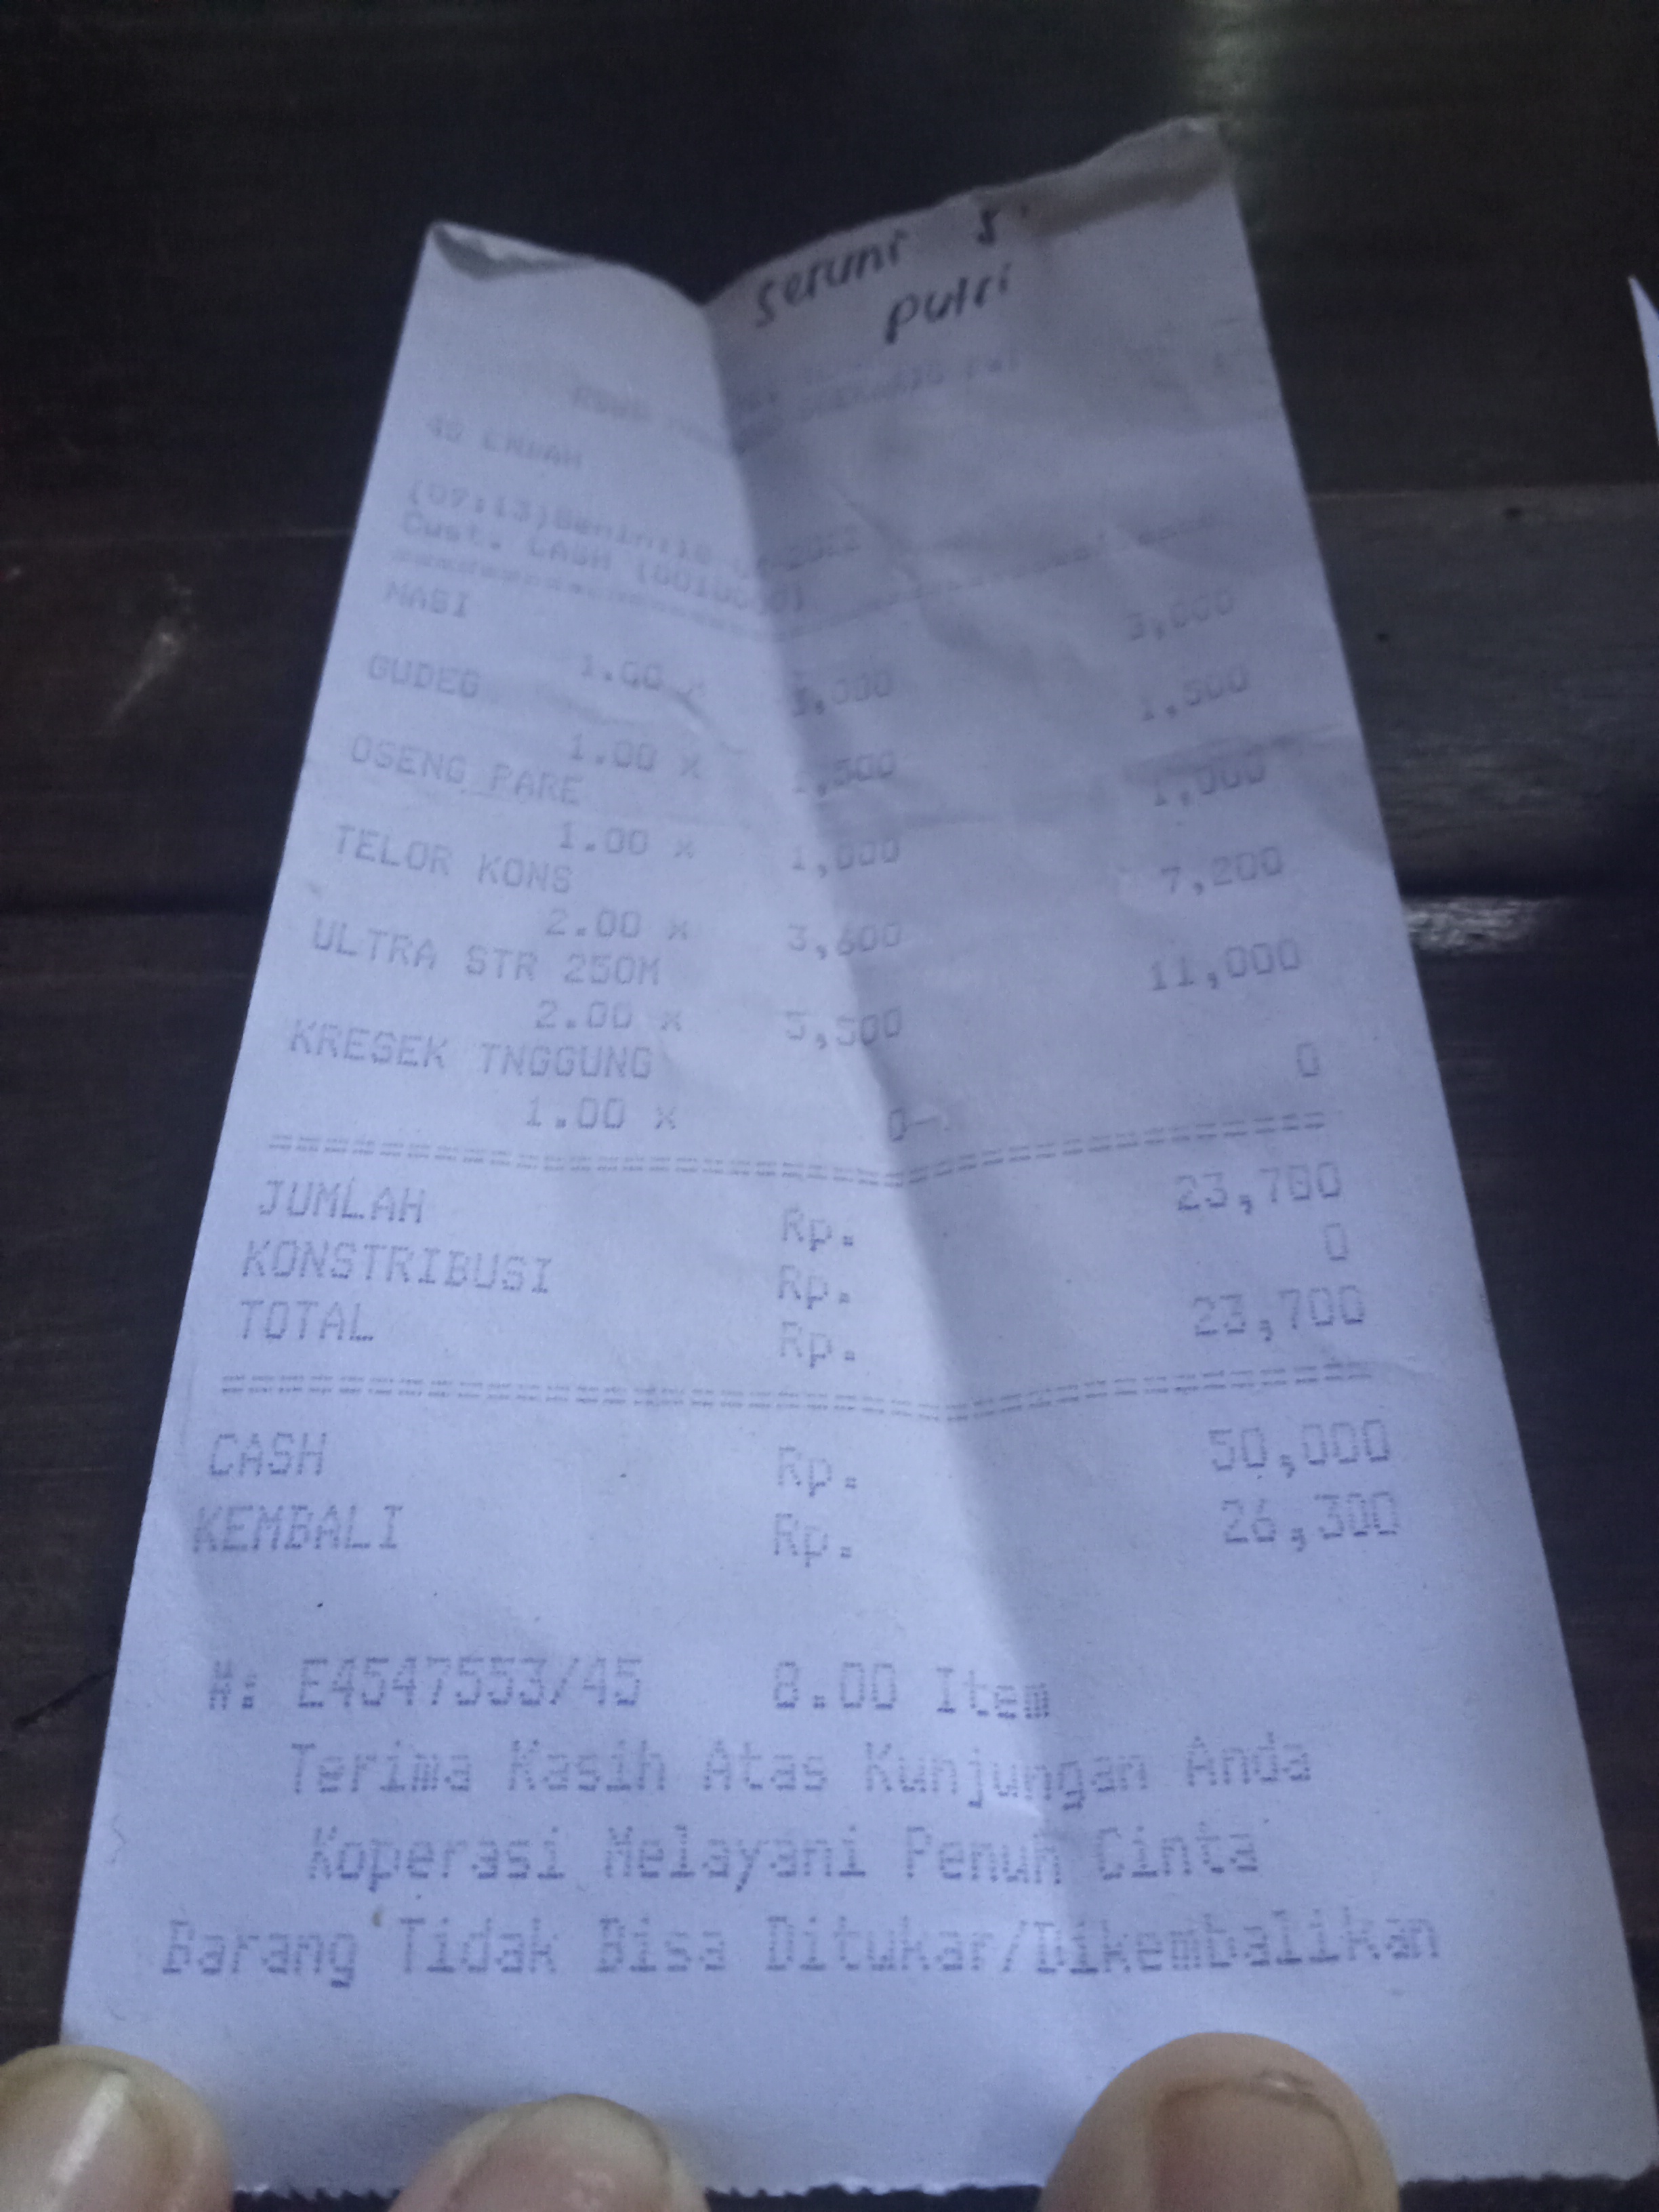 Seruni 2
putri
45 ENDAH
(09:13)Senin:18
Cust. CASH
NASI 3,000
1.00 x 3,000
GUDEG 1,500
1.00 x 1,500
OSENG PARE 1,000
1.00 x 1,000
TELOR KONS 7,200
2.00 x 3,600
ULTRA STR 250M 11,000
2.00 x 5,500
KRESEK TNGGUNG 0
1.00 x 0
JUMLAH Rp. 23,700
KONSTRIBUSI Rp. 0
TOTAL Rp. 23,700
CASH Rp. 50,000
KEMBALI Rp. 26,300
#: E4547553/45 8.00 Item
Terima Kasih Atas Kunjungan Anda
Koperasi Melayani Penuh Cinta
Barang Tidak Bisa Ditukar/Dikembalikan